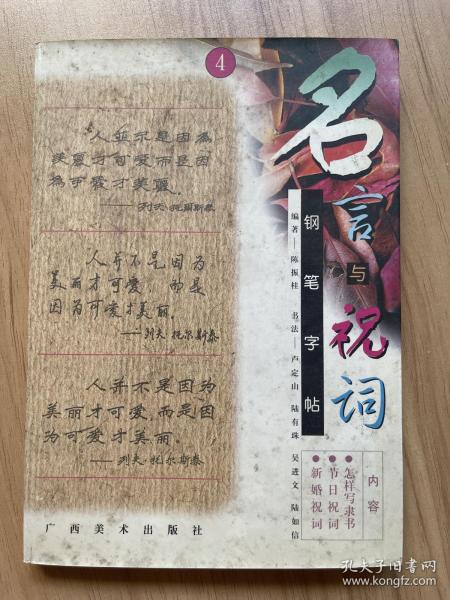 4
名言与祝词
钢笔字帖
编著——陈振桂 书法——卢定山 陆有珠 吴进文 陆如信
人並不是因為
美麗才可愛而是因
為可愛才美麗。
——列夫·托爾斯泰
人并不是因为
美丽才可爱 而是
因为可爱才美丽。
——列夫·托尔斯泰
人并不是因为
美丽才可爱,而是因
为可爱才美丽。
——列夫·托尔斯泰
内容
●怎样写隶书
●节日祝词
●新婚祝词
广西美术出版社
孔夫子旧书网
www.kongfz.com